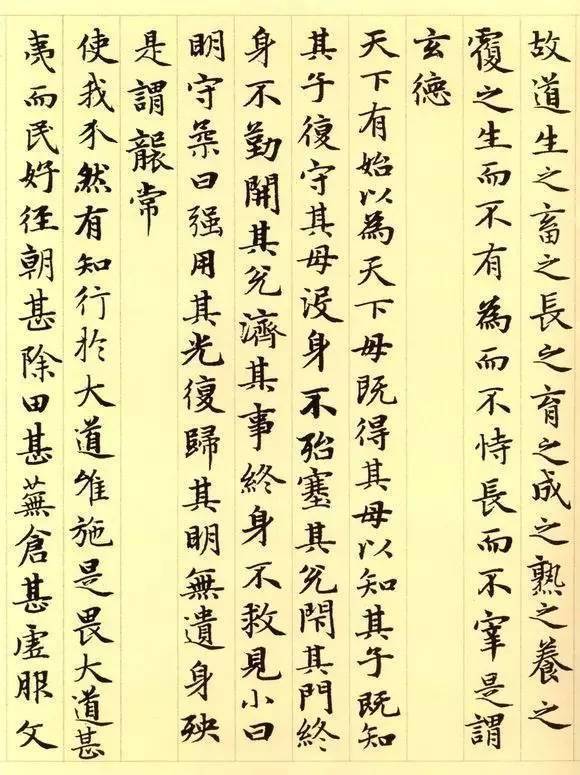 故道生之畜之長之育之成之熟之養之
覆之生而不有為而不恃長而不宰是謂
玄德
天下有始以為天下母既得其母以知其子既知
其子復守其母没身不殆塞其兊閇其門終
身不勤開其兊濟其事終身不救見小曰
明守柔曰强用其光復歸其明無遺身殃
是謂襲常
使我介然有知行於大道唯施是畏大道甚
夷而民好徑朝甚除田甚蕪倉甚虛服文